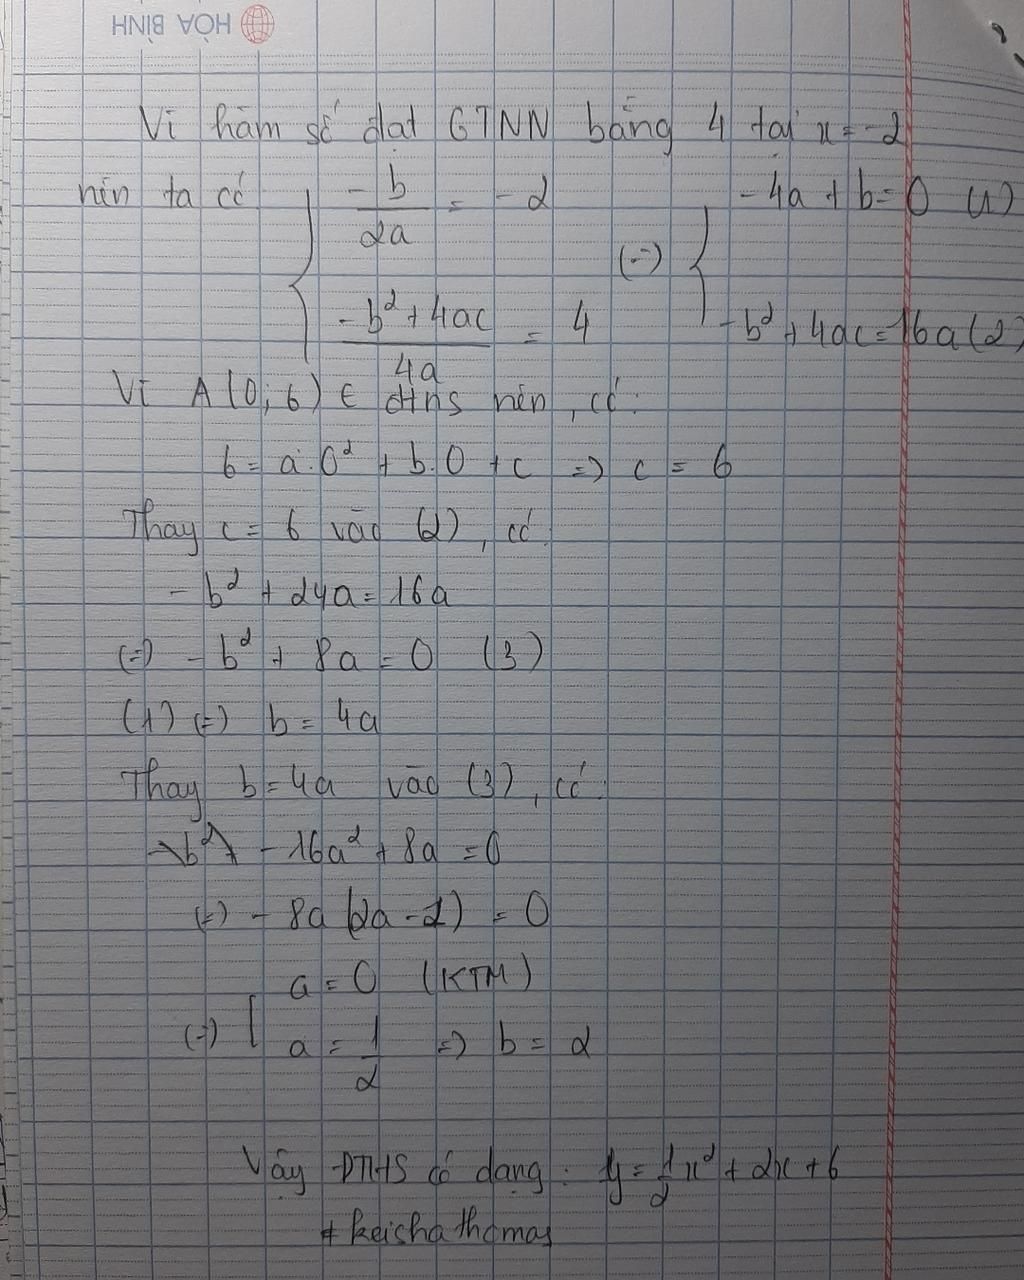 HÒA BÌNH
Vì hàm số đạt GTNN bằng 4 tại x = -2
nên ta có { -b/2a = -2 (=) { -4a + b = 0 (1)
(-b² + 4ac)/4a = 4 -b² + 4ac = 16a (2)
Vì A(0; 6) ∈ đths nên, có:
6 = a.0² + b.0 + c => c = 6
Thay c = 6 vào (2), có:
-b² + 24a = 16a
(=) -b² + 8a = 0 (3)
(1) (=) b = 4a
Thay b = 4a vào (3), có:
-16a² + 8a = 0
(=) -8a (2a - 1) = 0
(=) [ a = 0 (KTM)
a = 1/2 => b = 2
Vậy ĐTHS có dạng: y = 1/2 x² + 2x + 6
# keisha thomas